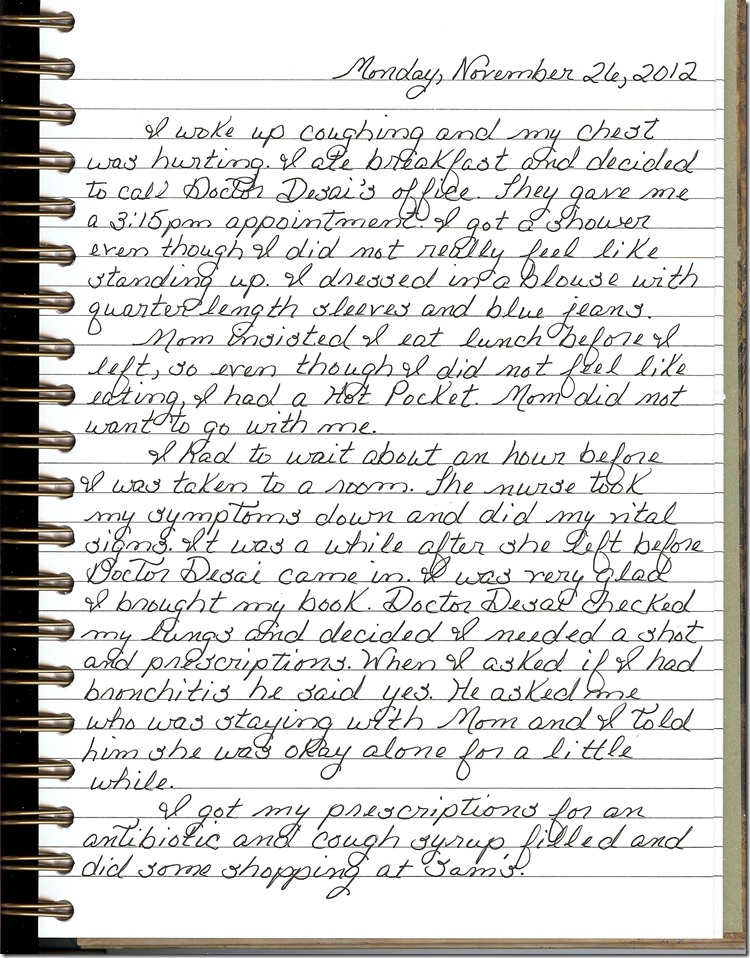 Monday, November 26, 2012
I woke up coughing and my chest
was hurting. I ate breakfast and decided
to call Doctor Desai's office. They gave me
a 3:15pm appointment. I got a shower
even though I did not really feel like
standing up. I dressed in a blouse with
quarter length sleeves and blue jeans.
Mom insisted I eat lunch before I
left, so even though I did not feel like
eating, I had a Hot Pocket. Mom did not
want to go with me.
I had to wait about an hour before
I was taken to a room. The nurse took
my symptoms down and did my vital
signs. It was a while after she left before
Doctor Desai came in. I was very glad
I brought my book. Doctor Desai checked
my lungs and decided I needed a shot
and prescriptions. When I asked if I had
bronchitis he said yes. He asked me
who was staying with Mom and I told
him she was okay alone for a little
while.
I got my prescriptions for an
antibiotic and cough syrup filled and
did some shopping at Sam's.